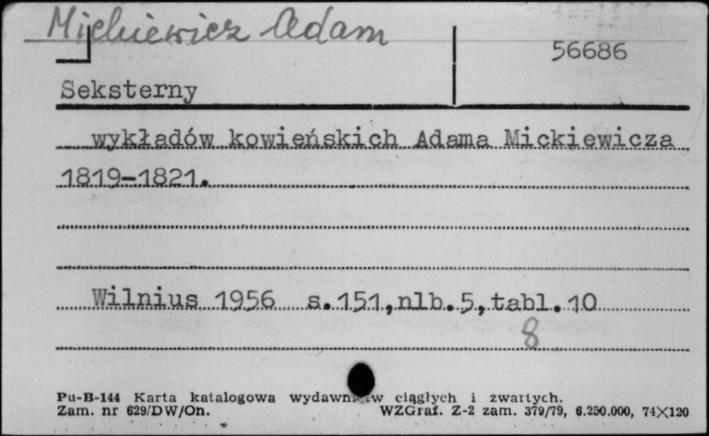 Mickiewicz Adam
56686
Seksterny
wykładów kowieńskich Adama Mickiewicza
1819-1821.
Wilnius 1956 s.151,nlb.5,tabl.10
8
Pu-B-144 Karta katalogowa ciągłych i zwartych.
Zam. nr 629/DW/On. WZGraf. Z-2 zam. 379/79, 6.250.000, 74×120